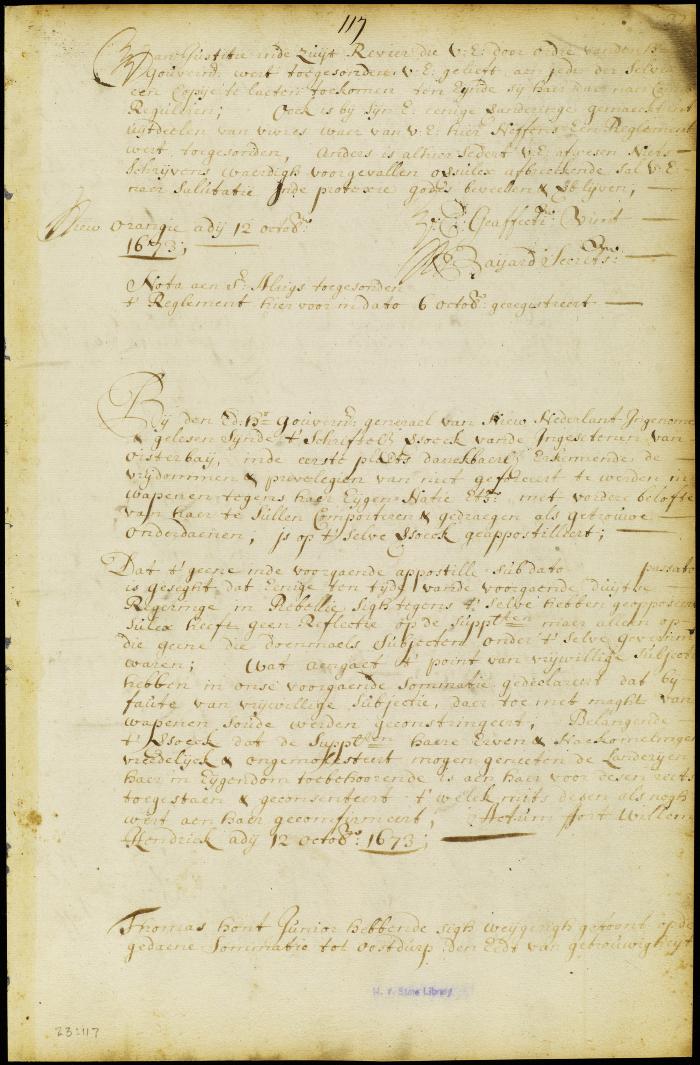 117
van Justitie inde Zuijt Revier die V: E: door ordre vanden Hr
Gouvernr. wert toegesonden V: E: gelieft aen jeder der selve
een Copije te laeten toekomen ten Eynde sij haer daer naer Connen
Reguleren; Oock is bij Sijn E: eenige Handeringe gemaeckt int
uijtdeelen van vivres waer van V: E: hier Neffens Een Reglement
wert toegesonden, Anders is alhier sedert V: E: afwesen Niets
Schrijvens waerdigh voorgevallen ossulcx afbreekende sal V: E:
naer Salutatie Inde protexie godes beveelen & Blijven,
Niew Orangie adij 12 octobr: V: E: Geaffectr: Vrient
1673; N: Bayard Secrets:
Nota aen Sr. Alrigs toegesonden
t' Reglement hier voor in dato 6 octobr: geregistreert
Bij den Ed: Hr Gouvernr. generael van Niew Nederlant Ingenomen
& gelesen sijnde t' Schriftelijck Versoeck vande Ingesetenen van
Oisterbaij, inde eerste plaets danckbaerlijck Erkennende de
vrijdommen & previlegien van niet geforceert te werden in
wapenen tegens haer Eijgen Natie Etc: met vordere belofte
van haer te sullen Comporteren & gedraegen als getrouwe
onderdaenen, is op t' selve Versoek geappostilleert;
Dat t' geene inde voorgaende appostille sub dato passato
is geseght dat Eenige ten tijde vande voorgaende duijtse
Regeringe in Rebellie sigh tegens t' selve hebben geopposeert
sulcx heeft geen Reflectie op de Supplten maer alleen op
die geene die doenmaels Subjecten onder t' selve governmt
waren; Wat aengaet t' point van vrijwillige Subjectie
hebben in onse voorgaende Sommatie gedeclareert dat bij
faute van vrijwillige Subjectie, daer toe met maght van
wapenen soude werden geconstringeert; Belangende
t' Versoeck dat de Supplten haere Erven & Naekomelingen
vreedelijck & ongemolesteert mogen genieten de Landerijen
haer in Eijgendom toebehoorende is aen haer voor desen reets
toegestaen & geconsenteert t' welck mits desen als nogh
wert aen haer geconfirmeert, Actum fort Willem
Hendrick adij 12 octobr: 1673;
Thomas Hont Junior hebbende sigh weijgerigh getoont op de
gedaene Sommatie tot Oostdurp den Eedt van getrouwigheyt
N. Y. State Library
23:117